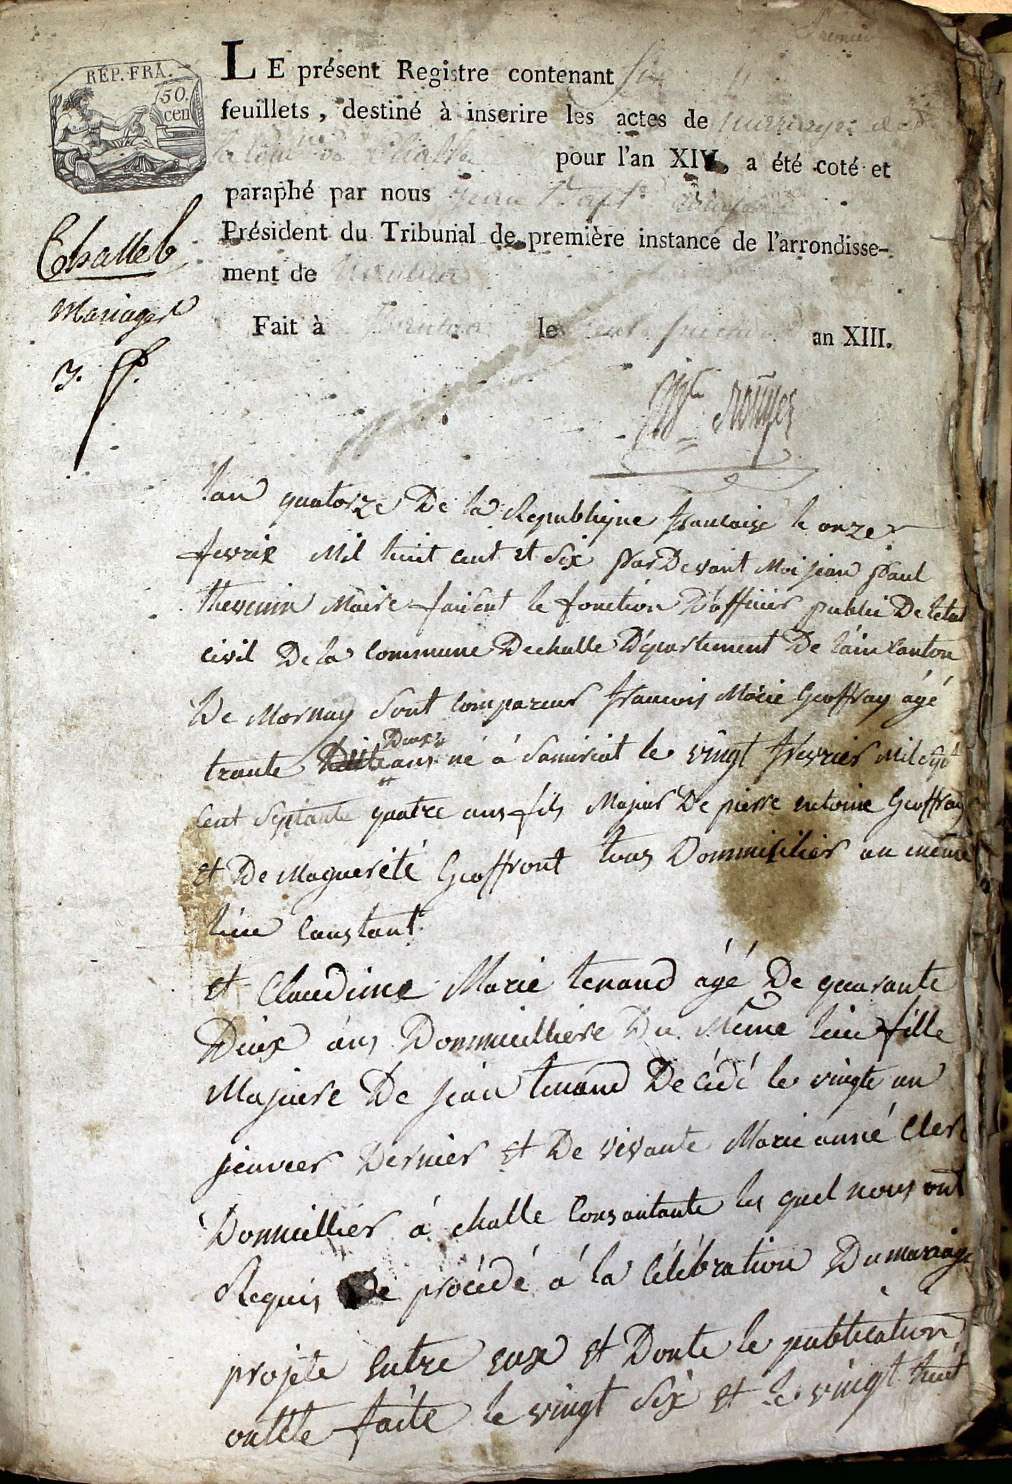 Premier
RÉP. FRA.
50.
cen
LE présent Registre contenant six
feuillets, destiné à inserire les actes de mariages de
la com. de Challe pour l'an XIV, a été coté et
paraphé par nous Jean Bapt.
Président du Tribunal de première instance de l'arrondisse-
ment de Nantua
Fait à Nantua le an XIII.
Challe
Mariages
3. ff.
lan quatorze De la Republique francaise le onze
fevrie Mil huit cent et Six par Devant Moi jean paul
thevenin Maire faisent le fonction D'officier public De letat
civil De la Commune Dechalle Département De lain Canton
De Mornay Sont Compareus francois Marie Geoffray âgé
trante Deux ans né á Samisiat le vingt fevrier Mil sept
et
Cent Septante quatre ans fils Majeur De pierre entoine Geoffray
et De Maguerité Geoffront tous Dommisilier au même
lieu Consant
et Claudine Marie tenand âgé De quarante
Deux áns Dommicilliere Du Même lieu fille
Majuere De jean tenand Décédé le vingte un
jenveer Dernier et De vivante Marie anné Clerc
Domicillier á challe Consantante les quel nous ont
Requis De procédé á la Célébration Du mariage
projete entre eux et Donte le publication
ontete faite le vingt Six et le vingt huit